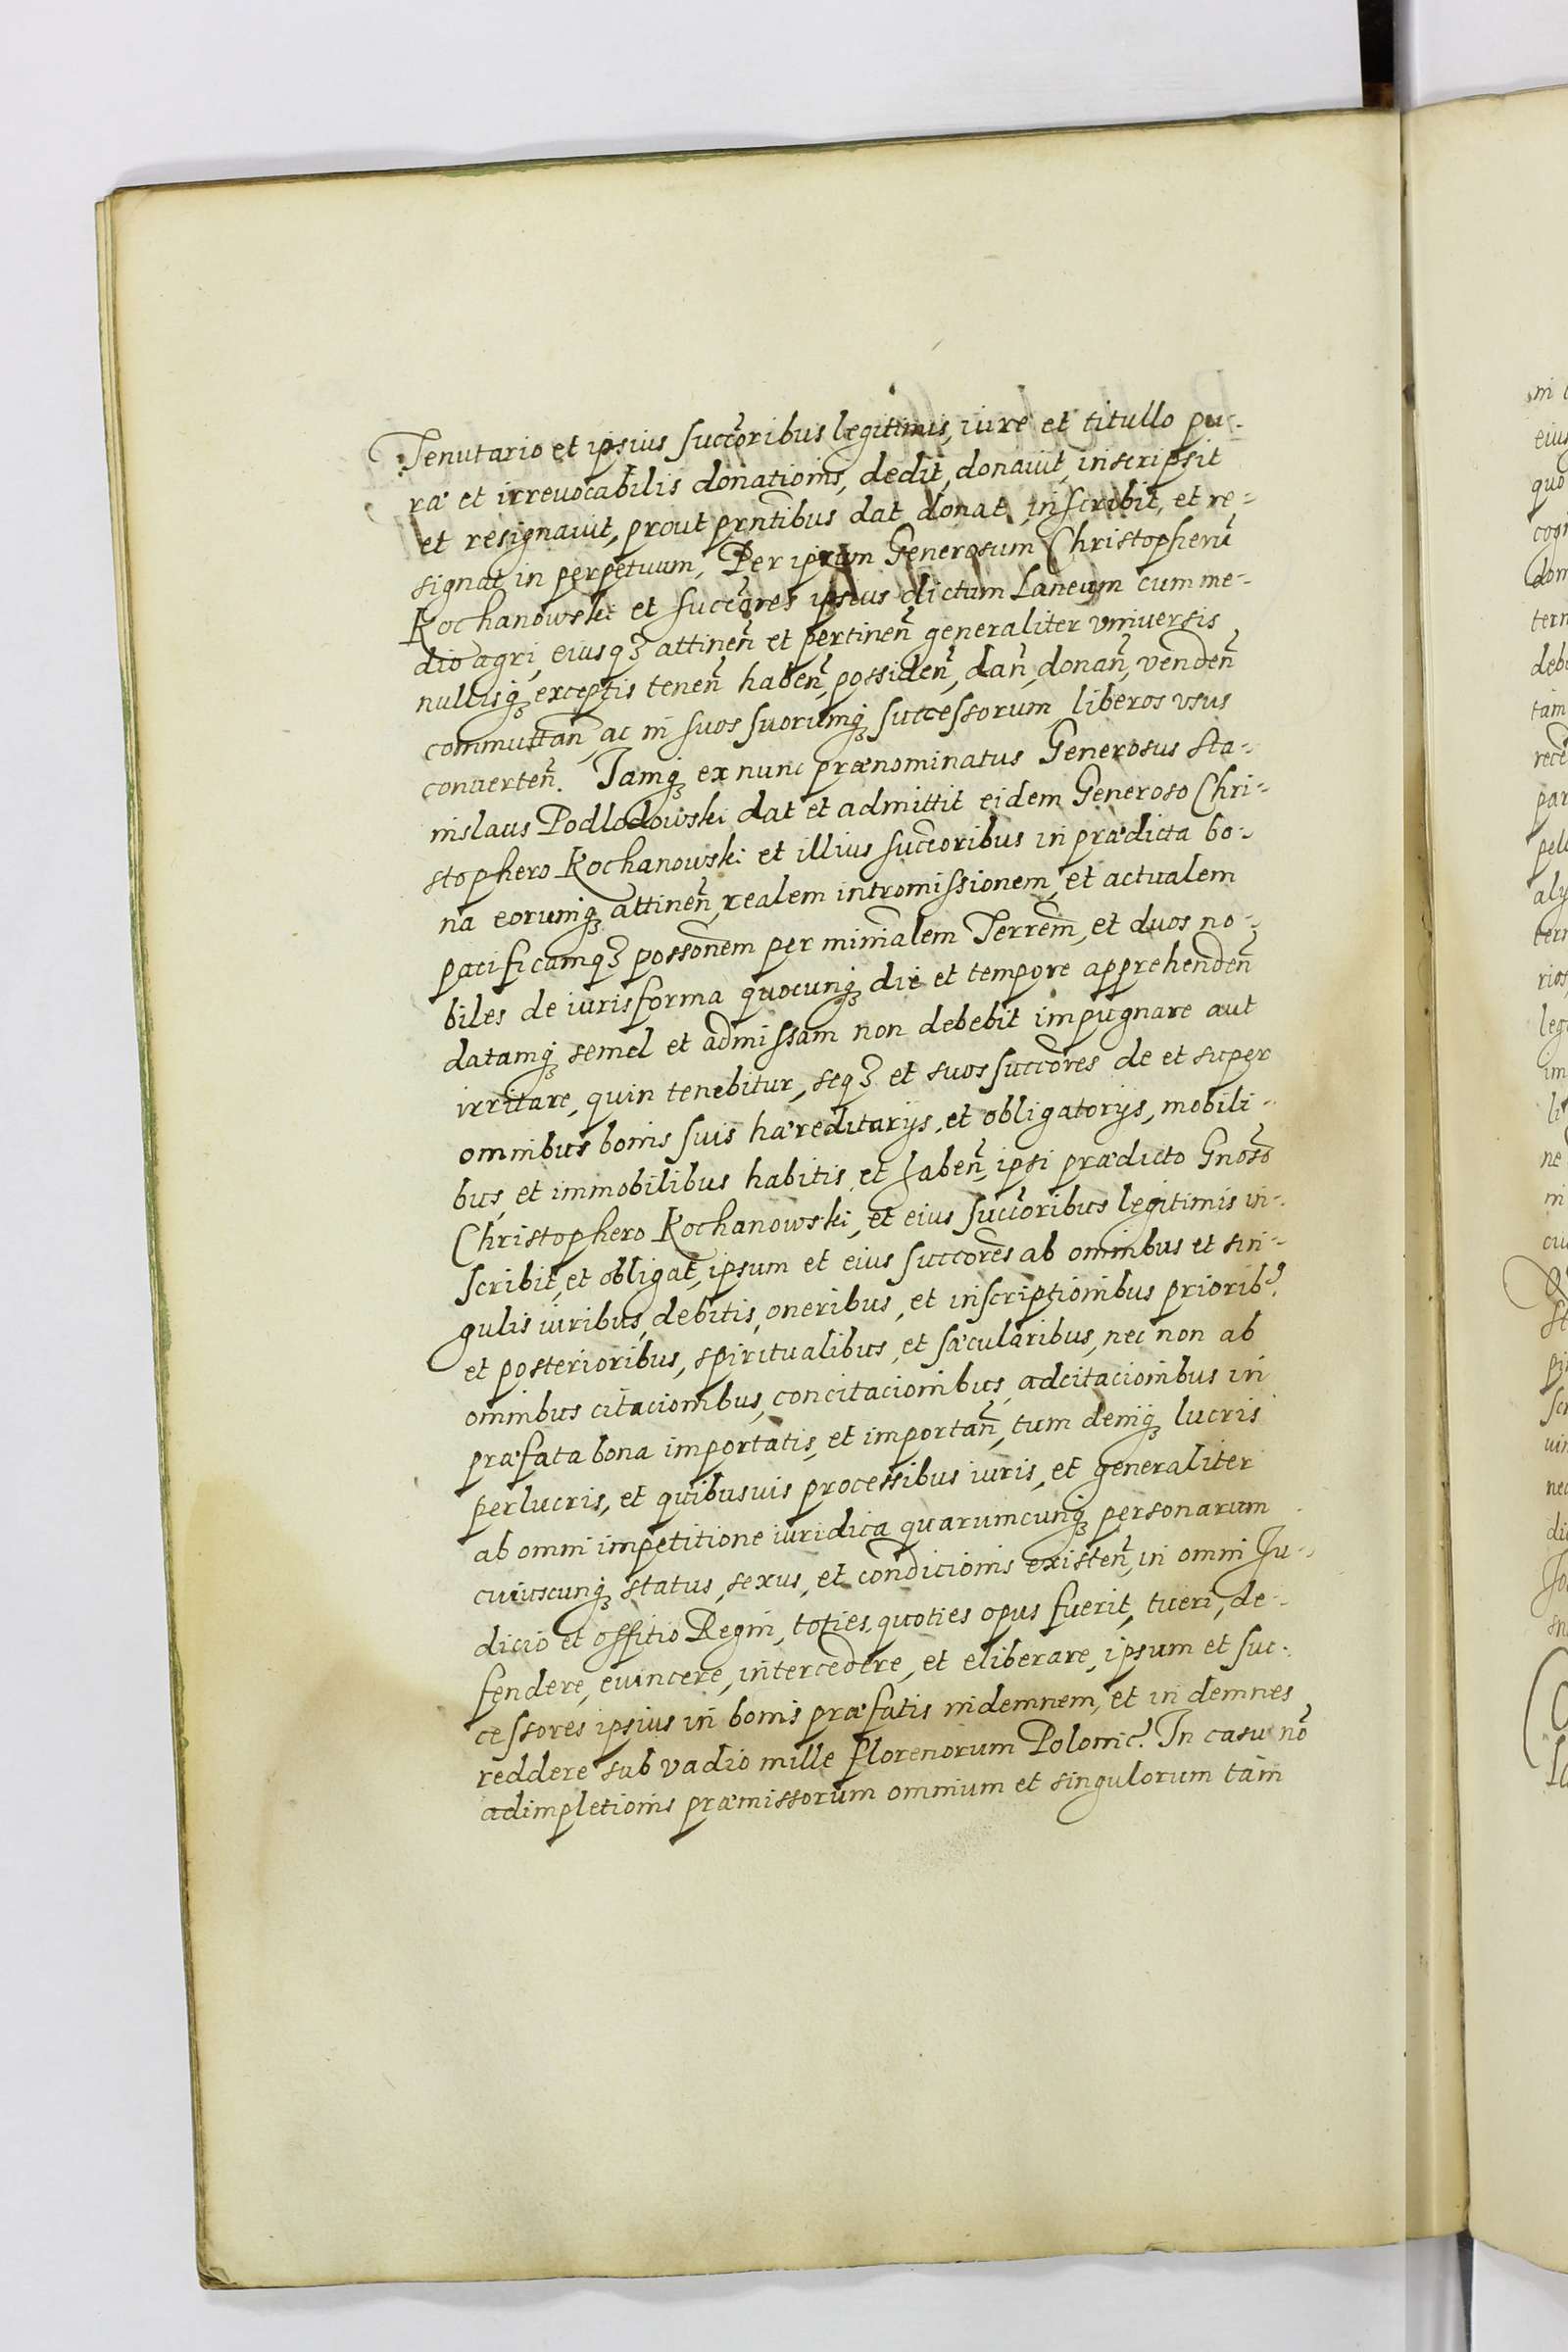 Tenutario et ipsius succ̃oribus legitimis, iure et titullo pu-
ræ et irreuocabilis donationis, dedit, donauit, inscripsit
et resignauit, prout prñtibus dat donat inscribit, et re-
signat in perpetuum, Per ipsum Generosum Christopherũ
Kochanowski et succ̃ores ipsius dictum Laneum cum me-
dio agri, eiusqꝫ attineñ et pertineñ generaliter vniuersis
nullisqꝫ exceptis teneñ habeñ, possideñ, dañ, donañ, vendeñ
commuttañ ac in suos suorumqꝫ successorum liberos vsus
conuerteñ. Iamqꝫ ex nunc prænominatus Generosus Sta-
nislaus Podlodowski dat et admittit eidem Generoso Chri-
stophero Kochanowski et illius succ̃oribus in prædicta bo-
na eorumqꝫ attineñ, realem intromissionem, et actualem
pacificamqꝫ possoñem per minialem Terreм̃, et duos no-
biles de iuris forma quocunqꝫ die et tempore apprehendeñ
datamqꝫ semel et admissam non debebit impugnare aut
irritare, quin tenebitur, seqꝫ et suos succõres de et super
omnibus bonis suis hæreditarijs, et obligatorijs, mobili-
bus, et immobilibus habitis, et habeñ, ipsi prædicto Gnõso
Christophero Kochanowski, et eius succ̃oribus legitimis in-
scribit, et obligat, ipsum et eius succõres ab omnibus et sin-
gulis iuribus, debitis, oneribus, et inscriptionibus prioribꝰ
et posterioribus, spiritualibus, et sæcularibus, nec non ab
omnibus citacionibus, concitacionibus, adcitacionibus in
præfata bona importatis, et importañ, tum deniqꝫ lucris
perlucris, et quibusuis processibus iuris, et generaliter
ab omni impetitione iuridica quarumcunqꝫ personarum
cuiuscunqꝫ status, sexus, et condicionis existeñ, in omni Iu-
dicio et offitio Regni, toties, quoties opus fuerit, tueri, de-
fendere, euincere, intercedere, et eliberare, ipsum et suc-
cessores ipsius in bonis præfatis indemnem, et in demnes
reddere sub vadio mille florenorum Polonic̃. In casu nõ
adimpletionis præmissorum omnium et singulorum tam